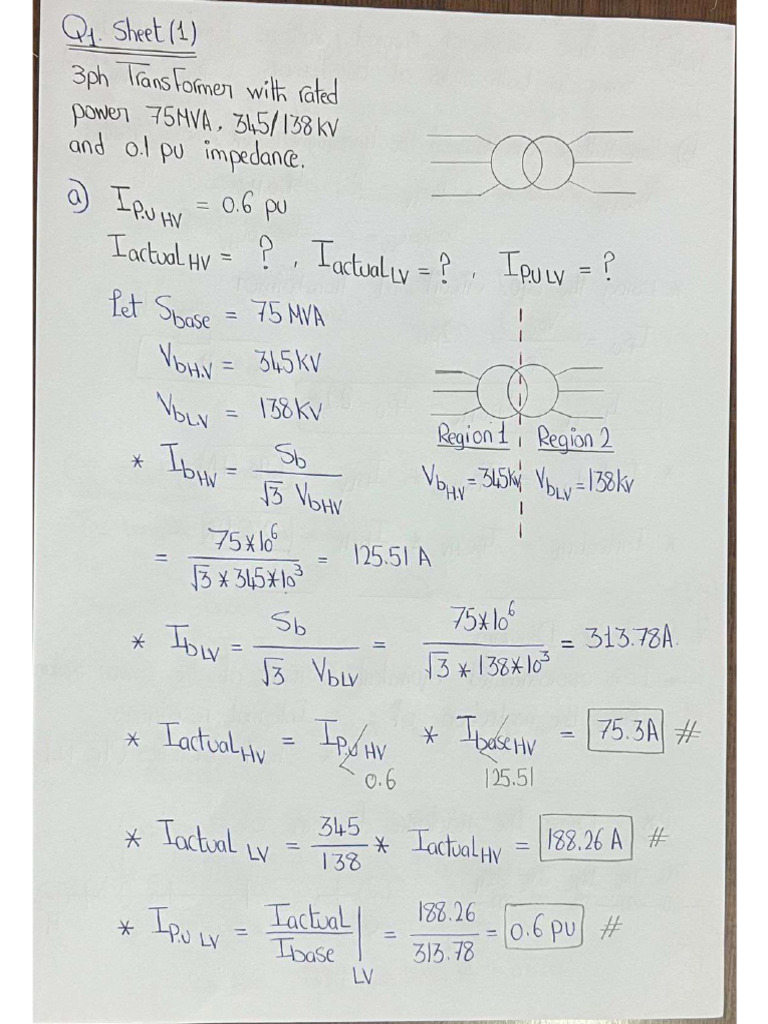 Q1. Sheet(1)
3ph Transformer with rated
power 75MVA, 345/138kV
and 0.1 pu impedance.
a) I P.U HV = 0.6 pu
I actual HV = ? , I actual LV = ? , I P.U LV = ?
Let S base = 75 MVA
V bH.V = 345kV
V bLV = 138kV
Region 1 Region 2
V bH.V = 345kV V bLV = 138kV
* I bHV = Sb / √3 V bHV
= 75*10^6 / √3 * 345*10^3 = 125.51 A
* I bLV = Sb / √3 V bLV = 75*10^6 / √3 * 138*10^3 = 313.78A.
* I actual HV = I P.U HV * I base HV = 75.3A #
0.6 125.51
* I actual LV = 345 / 138 * I actual HV = 188.26 A #
* I P.U LV = I actual / I base | LV = 188.26 / 313.78 = 0.6 pu #